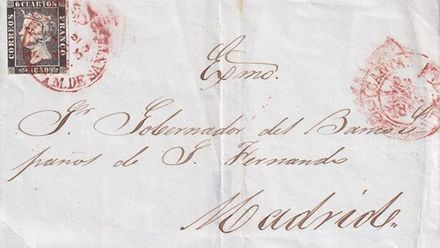 6 CUARTOS
CORREOS
FRANCO
1850
M. DE SANT
Exmo.
Sr. Gobernador del Banco Es
pañol de S. Fernando
Madrid